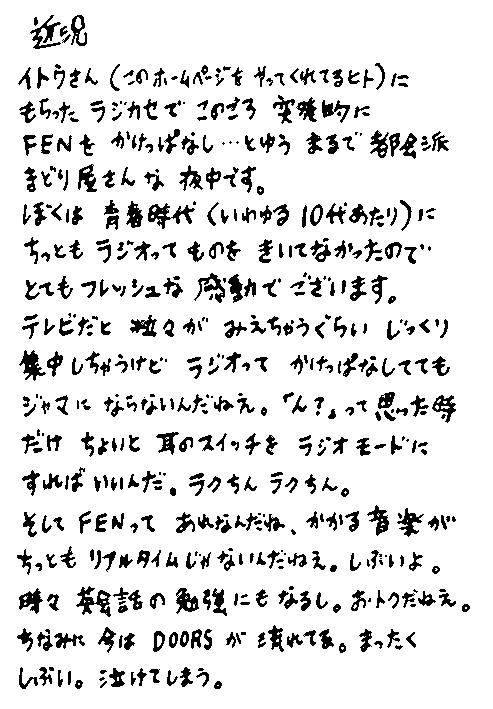 近況
イトウさん(このホームページをやってくれてるヒト)に
もらった ラジカセで このごろ 突発的に
FENを かけっぱなし…とゆう まるで 都会派
きどり屋さんな 夜中です。
ぼくは 青春時代(いわゆる10代あたり)に
ちっとも ラジオって ものを きいてなかったので
とても フレッシュな 感動で ございます。
テレビだと 粒々が みえちゃうぐらい じっくり
集中しちゃうけど ラジオって かけっぱなしてても
ジャマに ならないんだねえ。「ん?」って 思った時
だけ ちょいと 耳のスイッチを ラジオモードに
すれば いいんだ。ラクちん ラクちん。
そして FENって あれなんだね、かかる 音楽が
ちっとも リアルタイムじゃないんだねえ。しぶいよ。
時々 英会話の 勉強にも なるし。お・トクだねえ。
ちなみに 今は DOORSが 流れてる。まったく
しぶい。泣けてしまう。